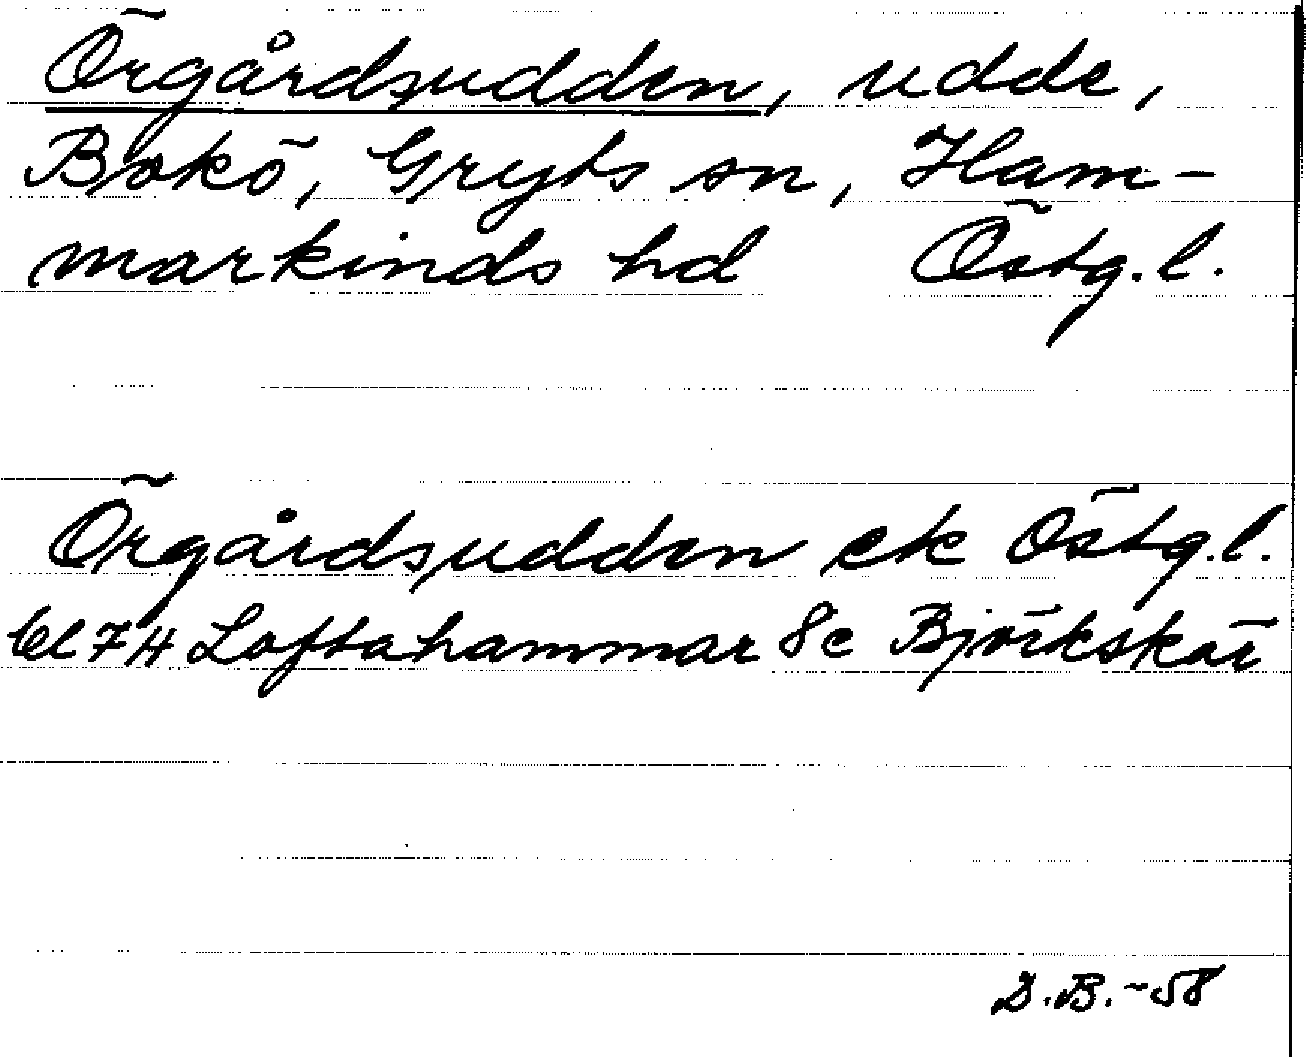 Örgårdsudden, udde,
Bokö, Gryts sn, Ham-
markinds hd Östg.l.
Örgårdsudden ek Östg.l.
bl 7H Loftahammar 8c Björkskär
D.B. -58